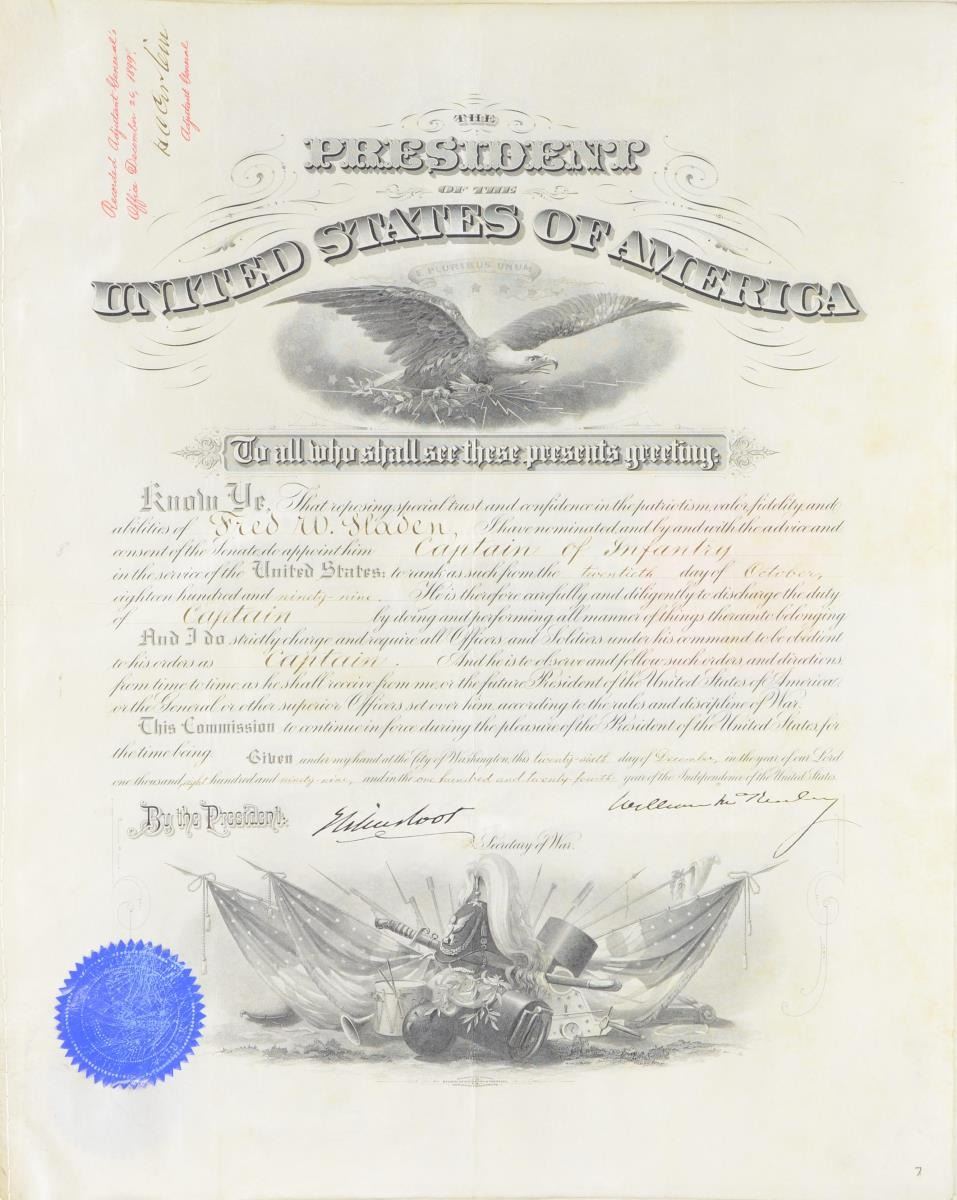 Recorded Adjutant General's
Office December 26, 1899.
Adjutant General
THE
PRESIDENT
OF THE
UNITED STATES OF AMERICA
E PLURIBUS UNUM
To all who shall see these presents greeting:
Know Ye, That reposing special trust and confidence in the patriotism, valor, fidelity, and
abilities of Fred W. Sladen, I have nominated and by and with the advice and
consent of the Senate, do appoint him Captain of Infantry
in the service of the United States: to rank as such from the twentieth day of October,
eighteen hundred and ninety-nine. He is therefore carefully and diligently to discharge the duty
of Captain by doing and performing all manner of things thereunto belonging
And I do strictly charge and require all Officers and Soldiers under his command to be obedient
to his orders as Captain. And he is to observe and follow such orders and directions
from time to time, as he shall receive from me, or the future President of the United States of America,
or the General or other superior Officers set over him, according to the rules and discipline of War.
This Commission to continue in force during the pleasure of the President of the United States for
the time being.
Given under my hand at the City of Washington, this twenty-sixth day of December, in the year of our Lord
one thousand, eight hundred and ninety-nine, and in the one hundred and twenty-fourth year of the Independence of the United States.
By the President:
Elihu Root
William McKinley
Secretary of War.
7